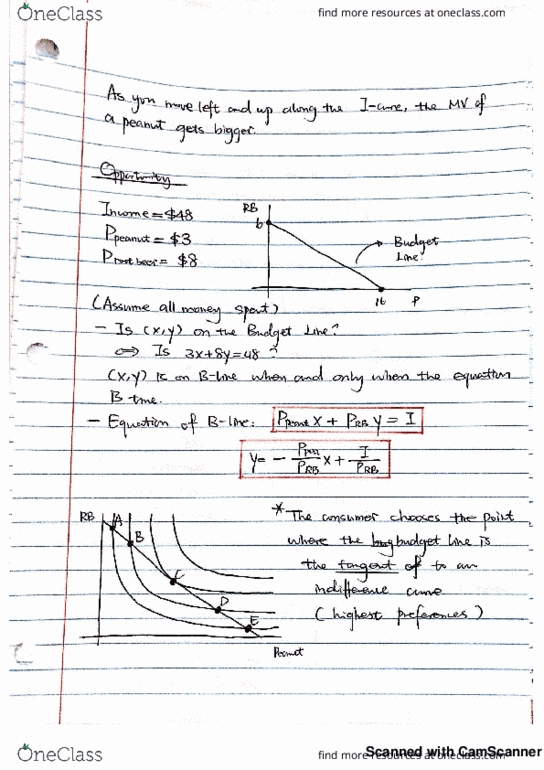 OneClass
find more resources at oneclass.com
As you move left and up along the I-curve, the MV of
a peanut gets bigger.
Opportunity
Income = $48
Ppeanut = $3
Proot beer = $8
RB
6
Budget
Line.
16 P
(Assume all money spent)
- Is (x,y) on the Budget Line?
⇔ Is 3x+8y=48?
(x,y) is on B-line when and only when the equation
is true.
- Equation of B-line: Ppeanut x + PRB y = I
y= - Ppea/PRB x + I/PRB
RB A
B
C
D
E
Peanut
* The consumer chooses the point
where the budget line is
the tangent of to an
indifference curve
(highest preferences)
OneClass
find more resources at oneclass.com
Scanned with CamScanner